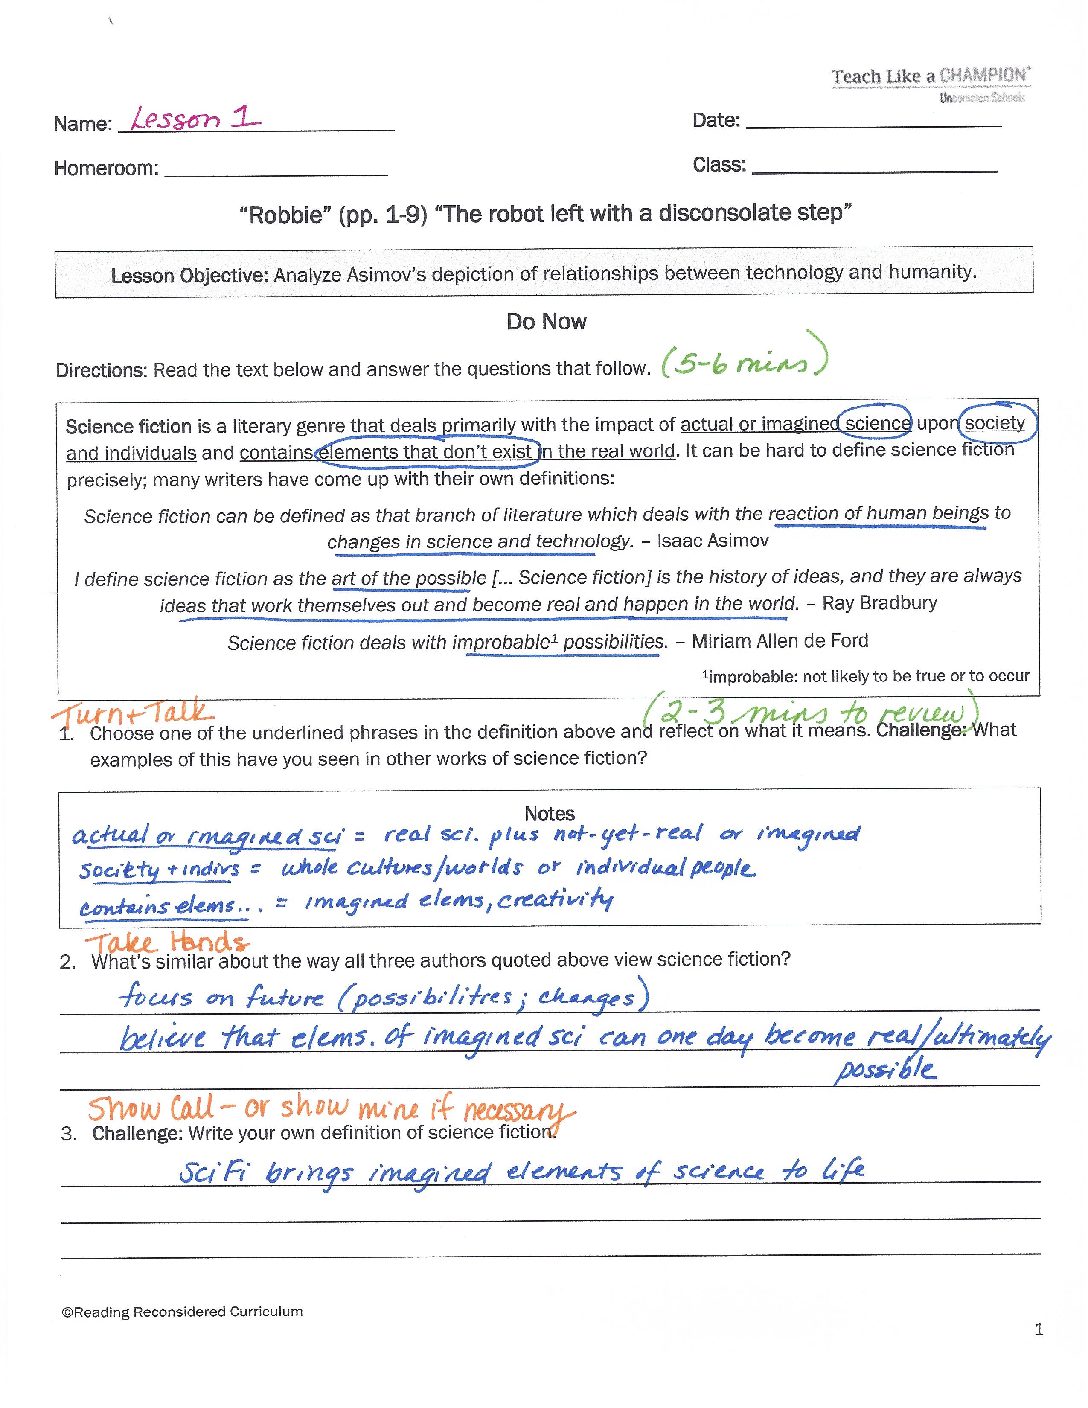 Teach Like a CHAMPION
Uncommon Schools
Name: Lesson 1 Date:
Homeroom: Class:
“Robbie” (pp. 1-9) “The robot left with a disconsolate step”
Lesson Objective: Analyze Asimov’s depiction of relationships between technology and humanity.
Do Now
Directions: Read the text below and answer the questions that follow. (5-6 mins)
Science fiction is a literary genre that deals primarily with the impact of actual or imagined science upon society
and individuals and contains elements that don’t exist in the real world. It can be hard to define science fiction
precisely; many writers have come up with their own definitions:
Science fiction can be defined as that branch of literature which deals with the reaction of human beings to
changes in science and technology. – Isaac Asimov
I define science fiction as the art of the possible [... Science fiction] is the history of ideas, and they are always
ideas that work themselves out and become real and happen in the world. – Ray Bradbury
Science fiction deals with improbable¹ possibilities. – Miriam Allen de Ford
¹improbable: not likely to be true or to occur
Turn + Talk (2-3 mins to review)
1. Choose one of the underlined phrases in the definition above and reflect on what it means. Challenge: What
examples of this have you seen in other works of science fiction?
Notes
actual or imagined sci = real sci. plus not-yet-real or imagined
society + indivs = whole cultures/worlds or individual people
contains elems... = imagined elems, creativity
Take Hands
2. What’s similar about the way all three authors quoted above view science fiction?
focus on future (possibilities; changes)
believe that elems. of imagined sci can one day become real/ultimately
possible
Show Call – or show mine if necessary
3. Challenge: Write your own definition of science fiction.
SciFi brings imagined elements of science to life
©Reading Reconsidered Curriculum
1